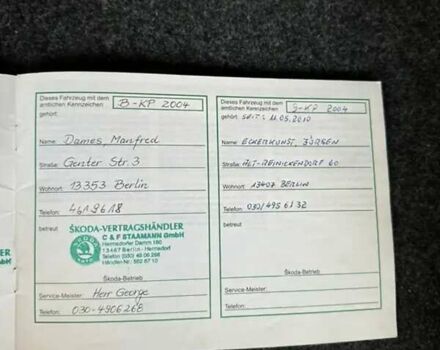 Dieses Fahrzeug mit dem
amtlichen Kennzeichen B-KP 2004
gehört:
Name: Dames, Manfred
Straße: Genter Str. 3
Wohnort: 13353 Berlin
Telefon: 4619618
betreut
ŠKODA-VERTRAGSHÄNDLER
C & F STAAMANN GmbH
Hermsdorfer Damm 180
13467 Berlin - Hermsdorf
Telefon (030) 49 06 268
Händler-Nr.: 582 67 10
Škoda-Betrieb
Service-Meister: Herr George
Telefon: 030-4906268
Dieses Fahrzeug mit dem
amtlichen Kennzeichen B-KP 2004
gehört: SEIT: 11.05.2010
Name: ECKERKUNST, JÜRGEN
Straße: ALT-REINICKENDORF 60
Wohnort: 13407 BERLIN
Telefon: 030/495 61 32
betreut
Škoda-Betrieb
Service-Meister:
Telefon: